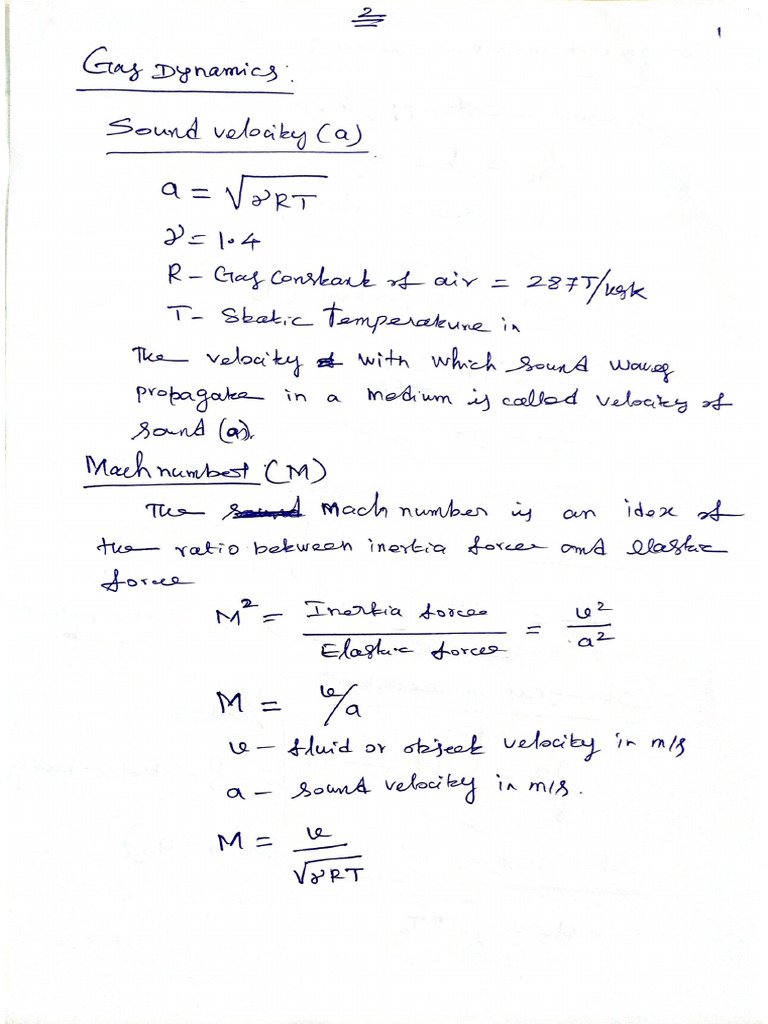 2
1
Gas Dynamics:
Sound velocity (a)
a = √γRT
γ = 1.4
R - Gas constant of air = 287J/kgk
T - Static Temperature in
The velocity with which sound waves
propagate in a medium is called velocity of
sound (a).
Mach number (M)
The Mach number is an idex of
the ratio between inertia force and elastic
force
M² = Inertia force / Elastic force = v²/a²
M = v/a
v - fluid or object velocity in m/s
a - sound velocity in m/s.
M = v/√γRT